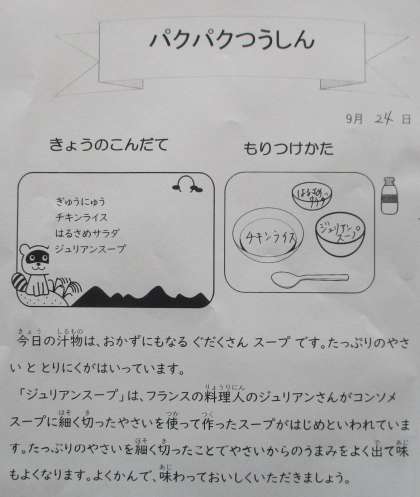 パクパクつうしん
9月 24 日
きょうのこんだて
もりつけかた
ぎゅうにゅう
チキンライス
はるさめサラダ
ジュリアンスープ
はるさめサラダ
チキンライス
ジュリアンスープ
今日の汁物は、おかずにもなる ぐだくさん スープ です。たっぷりのやさ
い と とりにくがはいっています。
「ジュリアンスープ」は、フランスの料理人のジュリアンさんがコンソメ
スープに細く切ったやさいを使って作ったスープがはじめといわれていま
す。たっぷりのやさいを細く切ったことでやさいからのうまみをよく出て味
もよくなります。よくかんで、味わっておいしくいただきましょう。